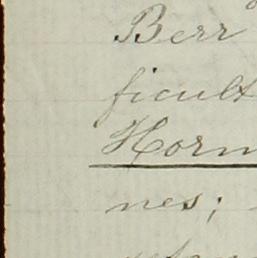 Berr
ficult
Horn
nes;